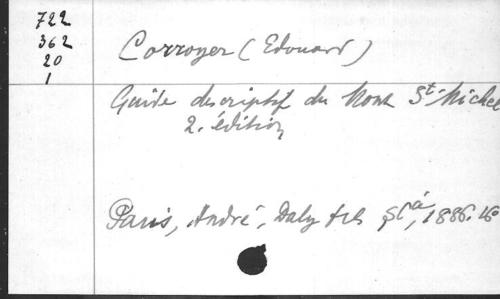 722
362
20
1
Corroyer (Edouard)
Guide descriptif du Mont St-Michel
2. édition
Paris, André, Daly fils &Cie, 1886. 16